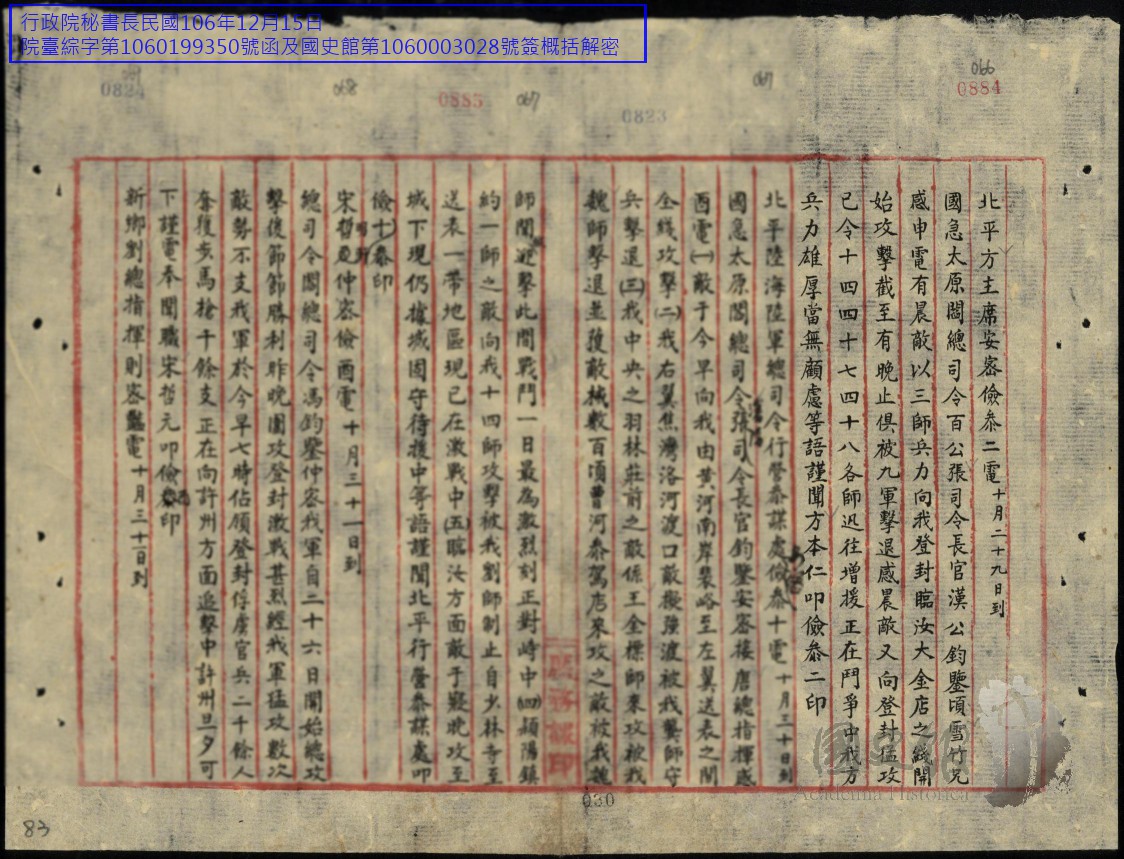 行政院秘書長民國106年12月15日
院臺綜字第1060199350號函及國史館第1060003028號簽概括解密
066
0884
067
0823
067
0885
068
082
北平方主席安密儉叅二電十月二十九日到
國急太原閻總司令百公張司令長官漢公鈞鑒頃雪竹兄
感申電有晨敵以三師兵力向我登封臨汝大金店之綫開
始攻擊截至有晚止俱被九軍擊退感晨敵又向登封猛攻
已令十四四十七四十八各師迅往增援正在鬥爭中我方
兵力雄厚當無顧慮等語謹聞方本仁叩儉叅二印
北平陸海陸軍總司令行營叅謀處儉叅十電十月三十日到
國急太原閻總司令張司令長官鈞鑒安密接唐總指揮感
酉電㈠敵于今早向我由黄河南岸裴峪至左翼送表之間
全綫攻擊㈡我右翼焦灣洛河渡口敵擬強渡被我龔師守
兵擊退㈢我中央之羽林莊前之敵係王金標師來攻被我
魏師擊退並獲敵械數百頃曹河泰駕店來攻之敵被我魏
師閻迎擊此間戰鬥一日最爲激烈刻正對峙中㈣潁陽鎮
約一師之敵向我十四師攻擊被我劉師制止自少林寺至
送表一帶地區現已在激戰中㈤臨汝方面敵于寢晚攻至
城下現仍據城固守待援中等語謹聞北平行營叅謀處叩
儉十叅印
宋哲元仲密儉酉電十月三十一日到
總司令閻總司令馮鈞鑒仲密我軍自二十六日開始總攻
擊後節節勝利昨晚圍攻登封激戰甚烈經我軍猛攻數次
敵勢不支我軍於今早七時佔領登封俘虜官兵二千餘人
奪獲步馬槍千餘支正在向許州方面追擊中許州旦夕可
下謹電奉聞職宋哲元叩儉酉印
新鄉劉總指揮則密豔電十月三十一日到
030
83
國史館
Academia Historica